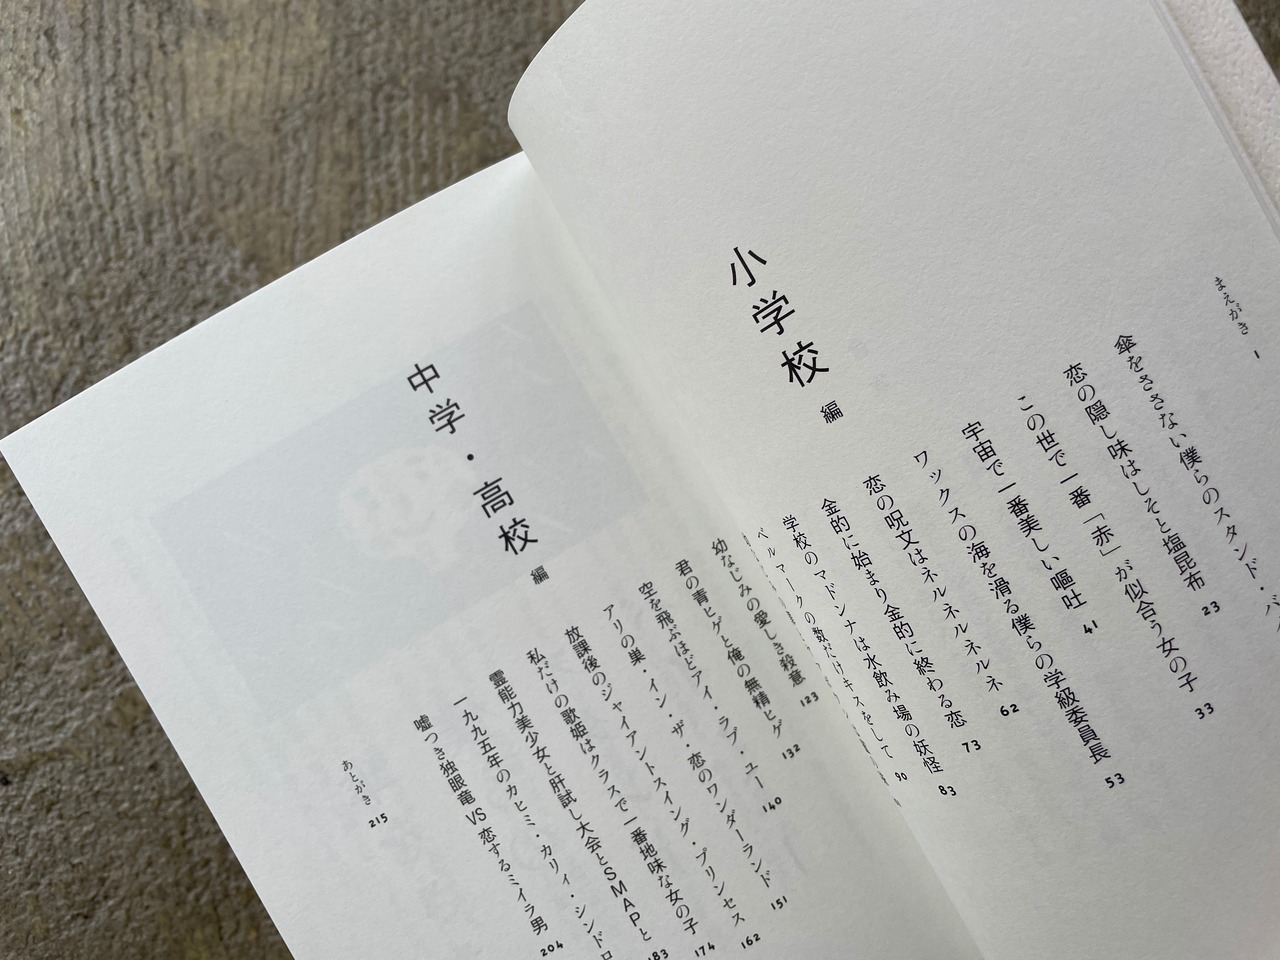 まえがき 1
小学校 編
傘をささない僕らのスタンド・バイ
恋の隠し味はしそと塩昆布 23
この世で一番「赤」が似合う女の子 33
宇宙で一番美しい嘔吐 41
ワックスの海を滑る僕らの学級委員長 53
恋の呪文はネルネルネルネ 62
金的に始まり金的に終わる恋 73
学校のマドンナは水飲み場の妖怪 83
ベルマークの数だけキスをして 90
中学・高校 編
幼なじみの愛しき殺意 123
君の青ヒゲと俺の無精ヒゲ 132
空を飛ぶほどアイ・ラブ・ユー 140
アリの巣・イン・ザ・恋のワンダーランド 151
放課後のジャイアントスイング・プリンセス 162
私だけの歌姫はクラスで一番地味な女の子 174
霊能力美少女と肝試し大会とSMAPと 183
一九九五年のカヒミ・カリィ・シンドロ
嘘つき独眼竜VS恋するミイラ男 204
あとがき 215